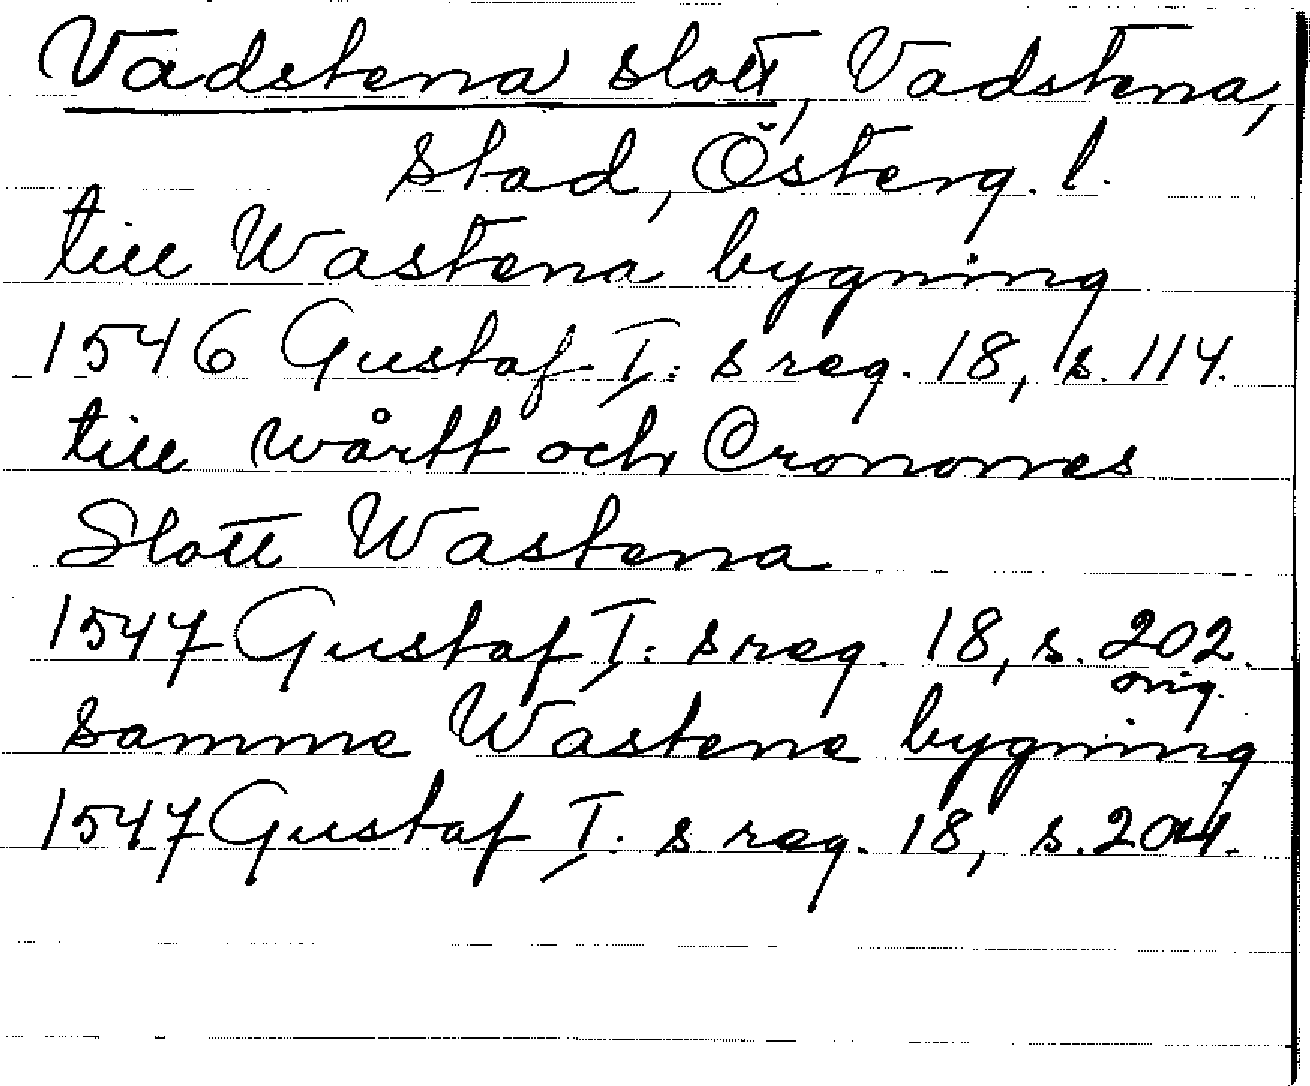 Vadstena slott, Vadstena,
stad, Österg. l.
till Wastena bygning
1546 Gustaf I: s reg. 18, s. 114.
till wårtt och Cronones
Slott Wastena
1547 Gustaf I: s reg. 18, s. 202.
orig.
samme Wastene bygning
1547 Gustaf I: s reg. 18, s. 204.